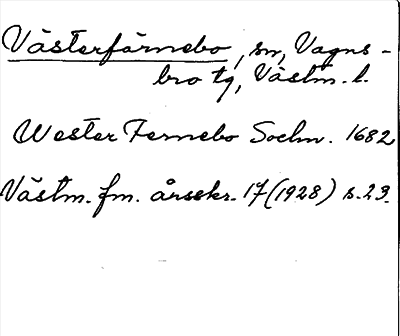 Västerfärnebo, sn, Vagns-
bro tg, Västm. l.
Wester Fernebo Sochn. 1682
Västm. fm. årsskr. 17 (1928) s. 23.